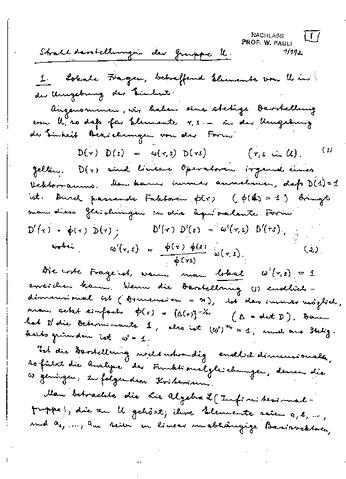 NACHLASS
PROF. W. PAULI
I
1/192
Strahldarstellungen der Gruppe U.
1. Lokale Fragen, betreffend Elemente von U in
der Umgebung der Einheit.
Angenommen, wir haben eine stetige Darstellung
von U, so daß für Elemente r, s – in der Umgebung
der Einheit Beziehungen von der Form
D(r) D(s) = ω(r,s) D(rs) (r, s in U). (1)
gelten. D(r) sind lineare Operatoren irgend eines
Vektorraums. Man kann immer annehmen, daß D(1) = 1
ist. Durch passende Faktoren φ(r) (φ(1) = 1) bringt
man diese Gleichungen in die äquivalente Form
D'(r) = φ(r) D(r); D'(r) D'(s) = ω'(r,s) D'(rs),
wobei ω'(r,s) = φ(r) φ(s) / φ(rs) ω(r,s). (2)
Die erste Frage ist, wann man lokal ω'(r,s) = 1
erreichen kann. Wenn die Darstellung (1) endlich-
dimensional ist (Dimension = n), ist das immer möglich,
man setzt einfach φ(r) = {Δ(r)}^-1/n (Δ = det D). Dann
hat D' die Determinante 1, also ist (ω')^n = 1, und aus Stetig-
keitsgründen ist ω' = 1.
Ist die Darstellung nicht notwendig endlich dimensional,
so führt die Analyse der Funktionalgleichungen, denen die
ω genügen, zu folgendem Kriterium.
Man betrachte die Lie Algebra L (Infinitesimal-
gruppe), die zu U gehört; ihre Elemente seien a, b, ...,
und a₁, ..., aₙ seien n linear unabhängige Basisvektoren,